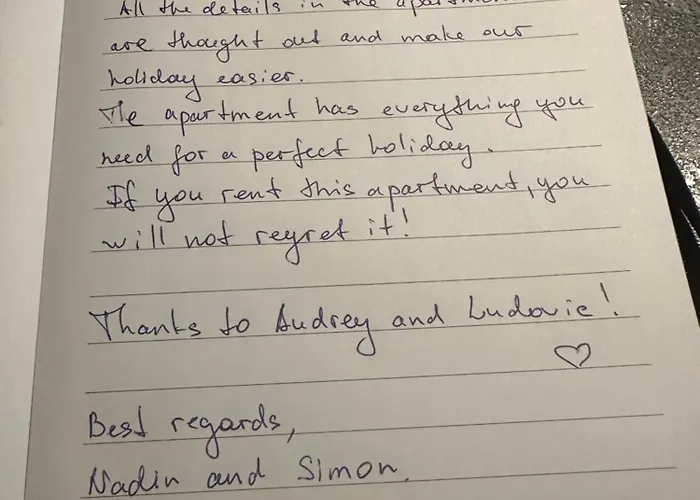 All the details in the apartment
are thought out and make our
holiday easier.
The apartment has everything you
need for a perfect holiday.
If you rent this apartment, you
will not regret it!
Thanks to Audrey and Ludovic!
♡
Best regards,
Nadin and Simon.